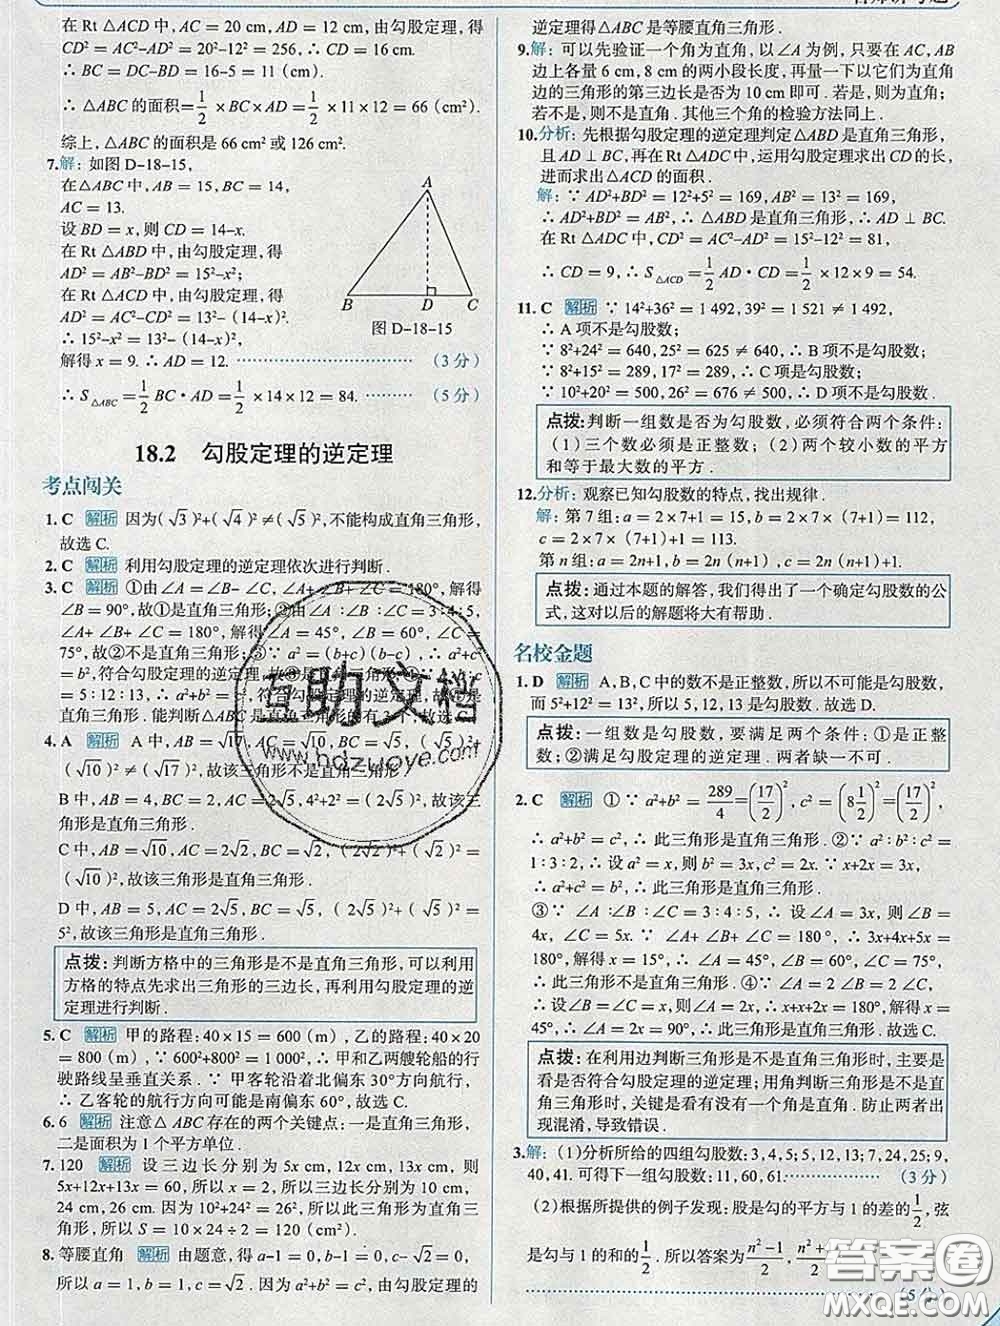 在 Rt △ACD 中,AC = 20 cm,AD = 12 cm,由勾股定理,得
CD² = AC²-AD² = 20²-12² = 256, ∴ CD = 16 cm.
∴ BC = DC-BD = 16-5 = 11 (cm).
∴ △ABC 的面积=1/2 × BC×AD = 1/2 ×11×12 = 66 (cm²).
综上,△ABC 的面积是 66 cm² 或 126 cm².
7.解: 如图 D-18-15,
在△ABC 中,AB = 15,BC = 14,
AC = 13.
设 BD = x,则 CD = 14-x.
在 Rt △ABD 中,由勾股定理,得
AD² = AB²-BD² = 15²-x²;
在 Rt △ACD 中,由勾股定理,得
AD² = AC²-CD² = 13²-(14-x)²,
∴ 15²-x² = 13²-(14-x)²,
解得 x = 9. ∴ AD = 12. (3 分)
∴ S△ABC = 1/2 BC·AD = 1/2 ×14×12 = 84. (5 分)
A
B D C
图 D-18-15
18.2 勾股定理的逆定理
考点闯关
1.C 解析 因为(√3)²+(√4)²≠(√5)²,不能构成直角三角形,
故选 C.
2.C 解析 利用勾股定理的逆定理依次进行判断.
3.C 解析 ①由∠A=∠B-∠C,∠A+∠B+∠C=180°,解得
∠B = 90°,故①是直角三角形;②∵ ∠A∶∠B∶∠C = 3∶4∶5,
∠A+ ∠B+ ∠C = 180°,解得∠A = 45°, ∠B = 60°, ∠C =
75°,故②不是直角三角形;③∵ a² = (b+c)(b-c), ∴ a²+c² =
b²,符合勾股定理的逆定理,故③是直角三角形;④∵ a∶b∶c
= 5∶12∶13, ∴ a²+b² = c²,符合勾股定理的逆定理,故④是直
角三角形.能判断△ABC 是直角三角形的有 3 个,故选 C.
4.A 解析 A 中,AB = √17,AC = √10,BC = √10,(√10)²+
(√10)² ≠ (√17)²,故该三角形不是直角三角形.
B 中,AB = 4,BC = 2,AC = 2√5,4²+2² = (2√5)²,故该三
角形是直角三角形.
C 中,AB = √10,AC = 2√2,BC = √2,(2√2)²+(√2)² =
(√10)²,故该三角形是直角三角形.
D 中,AB = 5,AC = 2√5,BC = √5,(2√5)²+(√5)² =
5²,故该三角形是直角三角形.
点拨:判断方格中的三角形是不是直角三角形,可以利用
方格的特点先求出三角形的三边长,再利用勾股定理的逆
定理进行判断.
5.C 解析 甲的路程:40×15 = 600 (m),乙的路程:40×20
= 800 (m), ∵ 600²+800² = 1 000², ∴ 甲和乙两艘轮船的行
驶路线呈垂直关系. ∵ 甲客轮沿着北偏东 30°方向航行,
∴ 乙客轮的航行方向可能是南偏东 60°,故选 C.
6.6 解析 注意△ ABC 存在的两个关键点:一是直角三角形,
二是面积为 1 个平方单位.
7.120 解析 设三边长分别为 5x cm, 12x cm, 13x cm, 则
5x+12x+13x = 60,所以 x = 2,所以三边长分别为 10 cm,
24 cm,26 cm. 因为 10²+24² = 26²,所以此三角形为直角三
角形,所以 S = 10×24÷2 = 120 (cm²).
8.等腰直角 解析 由题意,得 a-1 = 0,b-1 = 0,c-√2 = 0,
所以 a = 1,b = 1,c = √2.因为 a²+b² = c²,由勾股定理的
逆定理得△ABC 是等腰直角三角形.
9.解: 可以先验证一个角为直角,以∠A 为例,只要在 AC,AB
边上各量 6 cm,8 cm 的两小段长度,再量一下以它们为直角
边的三角形的第三边长是否为 10 cm 即可. 若是,则为直角;
若不是,则不是直角. 其他三个角的检验方法同上.
10.分析: 先根据勾股定理的逆定理判定△ABD 是直角三角形,
且 AD ⊥ BC,再在 Rt △ADC 中,运用勾股定理求出 CD 的长,
进而求出△ACD 的面积.
解: ∵ AD²+BD² = 12²+5² = 169,AB² = 13² = 169,
∴ AD²+BD² = AB², ∴ △ABD 是直角三角形, ∴ AD ⊥ BC.
在 Rt △ADC 中, ∵ CD² = AC²-AD² = 15²-12² = 81,
∴ CD = 9, ∴ S△ACD = 1/2 AD·CD = 1/2 ×12×9 = 54.
11.C 解析 ∵ 14²+36² = 1 492,39² = 1 521 ≠ 1 492,
∴ A 项不是勾股数;
∵ 8²+24² = 640,25² = 625 ≠ 640, ∴ B 项不是勾股数;
∵ 8²+15² = 289,17² = 289, ∴ C 项是勾股数;
∵ 10²+20² = 500,26² = 676 ≠ 500, ∴ D 项不是勾股数.
点拨:判断一组数是否为勾股数,必须符合两个条件:
(1)三个数必须是正整数;(2)两个较小数的平方
和等于最大数的平方.
12.分析: 观察已知勾股数的特点,找出规律.
解: 第 7 组:a = 2×7+1 = 15, b = 2×7×(7+1) = 112,
c = 2×7×(7+1)+1 = 113.
第 n 组:a = 2n+1,b = 2n(n+1),c = 2n(n+1)+1.
点拨:通过本题的解答,我们得出了一个确定勾股数的公
式,这对以后的解题将大有帮助.
名校金题
1.D 解析 A,B,C 中的数不是正整数,所以不可能是勾股数,
而 5²+12² = 13²,所以 5,12,13 是勾股数.故选 D.
点拨:一组数是勾股数,要满足两个条件:①是正整
数;②满足勾股定理的逆定理. 两者缺一不可.
2.C 解析 ① ∵ a²+b² = 289/4 = (17/2)², c² = (8 1/2)² = (17/2)²,
∴ a²+b² = c², ∴ 此三角形是直角三角形. ②∵ a²∶b²∶c² =
1∶3∶2, ∴ 设 a² = x, 则 b² = 3x, c² = 2x. ∵ x+2x = 3x,
∴ a²+c² = b², ∴ 此三角形是直角三角形.
③ ∵ ∠A∶∠B∶∠C = 3∶4∶5, ∴ 设 ∠A = 3x, 则 ∠B =
4x, ∠C = 5x. ∵ ∠A+∠B+∠C = 180°, ∴ 3x+4x+5x =
180°, 解得 ∠C = 75°. ④ ∵ ∠A = 2 ∠B = 2 ∠C,
∴ 设∠B = ∠C = x,则∠A = 2x, ∴ x+x+2x = 180°,解得 x =
45°, ∴ ∠A = 2x = 90°, ∴ 此三角形是直角三角形. 故选 C.
点拨: 在利用边判断三角形是不是直角三角形时,主要是
看是否符合勾股定理的逆定理;用角判断三角形是不是直
角三角形时,关键是看有没有一个角是直角. 防止两者出
现混淆,导致错误.
3.解: (1)分析所给的四组勾股数:3,4,5;5,12,13;7,24,25;9,
40,41. 可得下一组勾股数:11,60,61. (3 分)
(2)根据所提供的例子发现:股是勾的平方与 1 的差的1/2,弦
是勾与 1 的和的1/2. 所以答案为(n²-1)/2,
互助文档
www.hdzuoye.com
答案圈
MXQE.COM